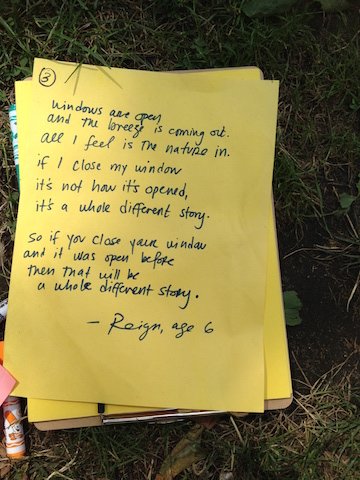 3
windows are open
and the breeze is coming out.
all I feel is the nature in.
if I close my window
it's not how it's opened,
it's a whole different story.
So if you close your window
and it was open before
then that will be
a whole different story.
– Reign, age 6